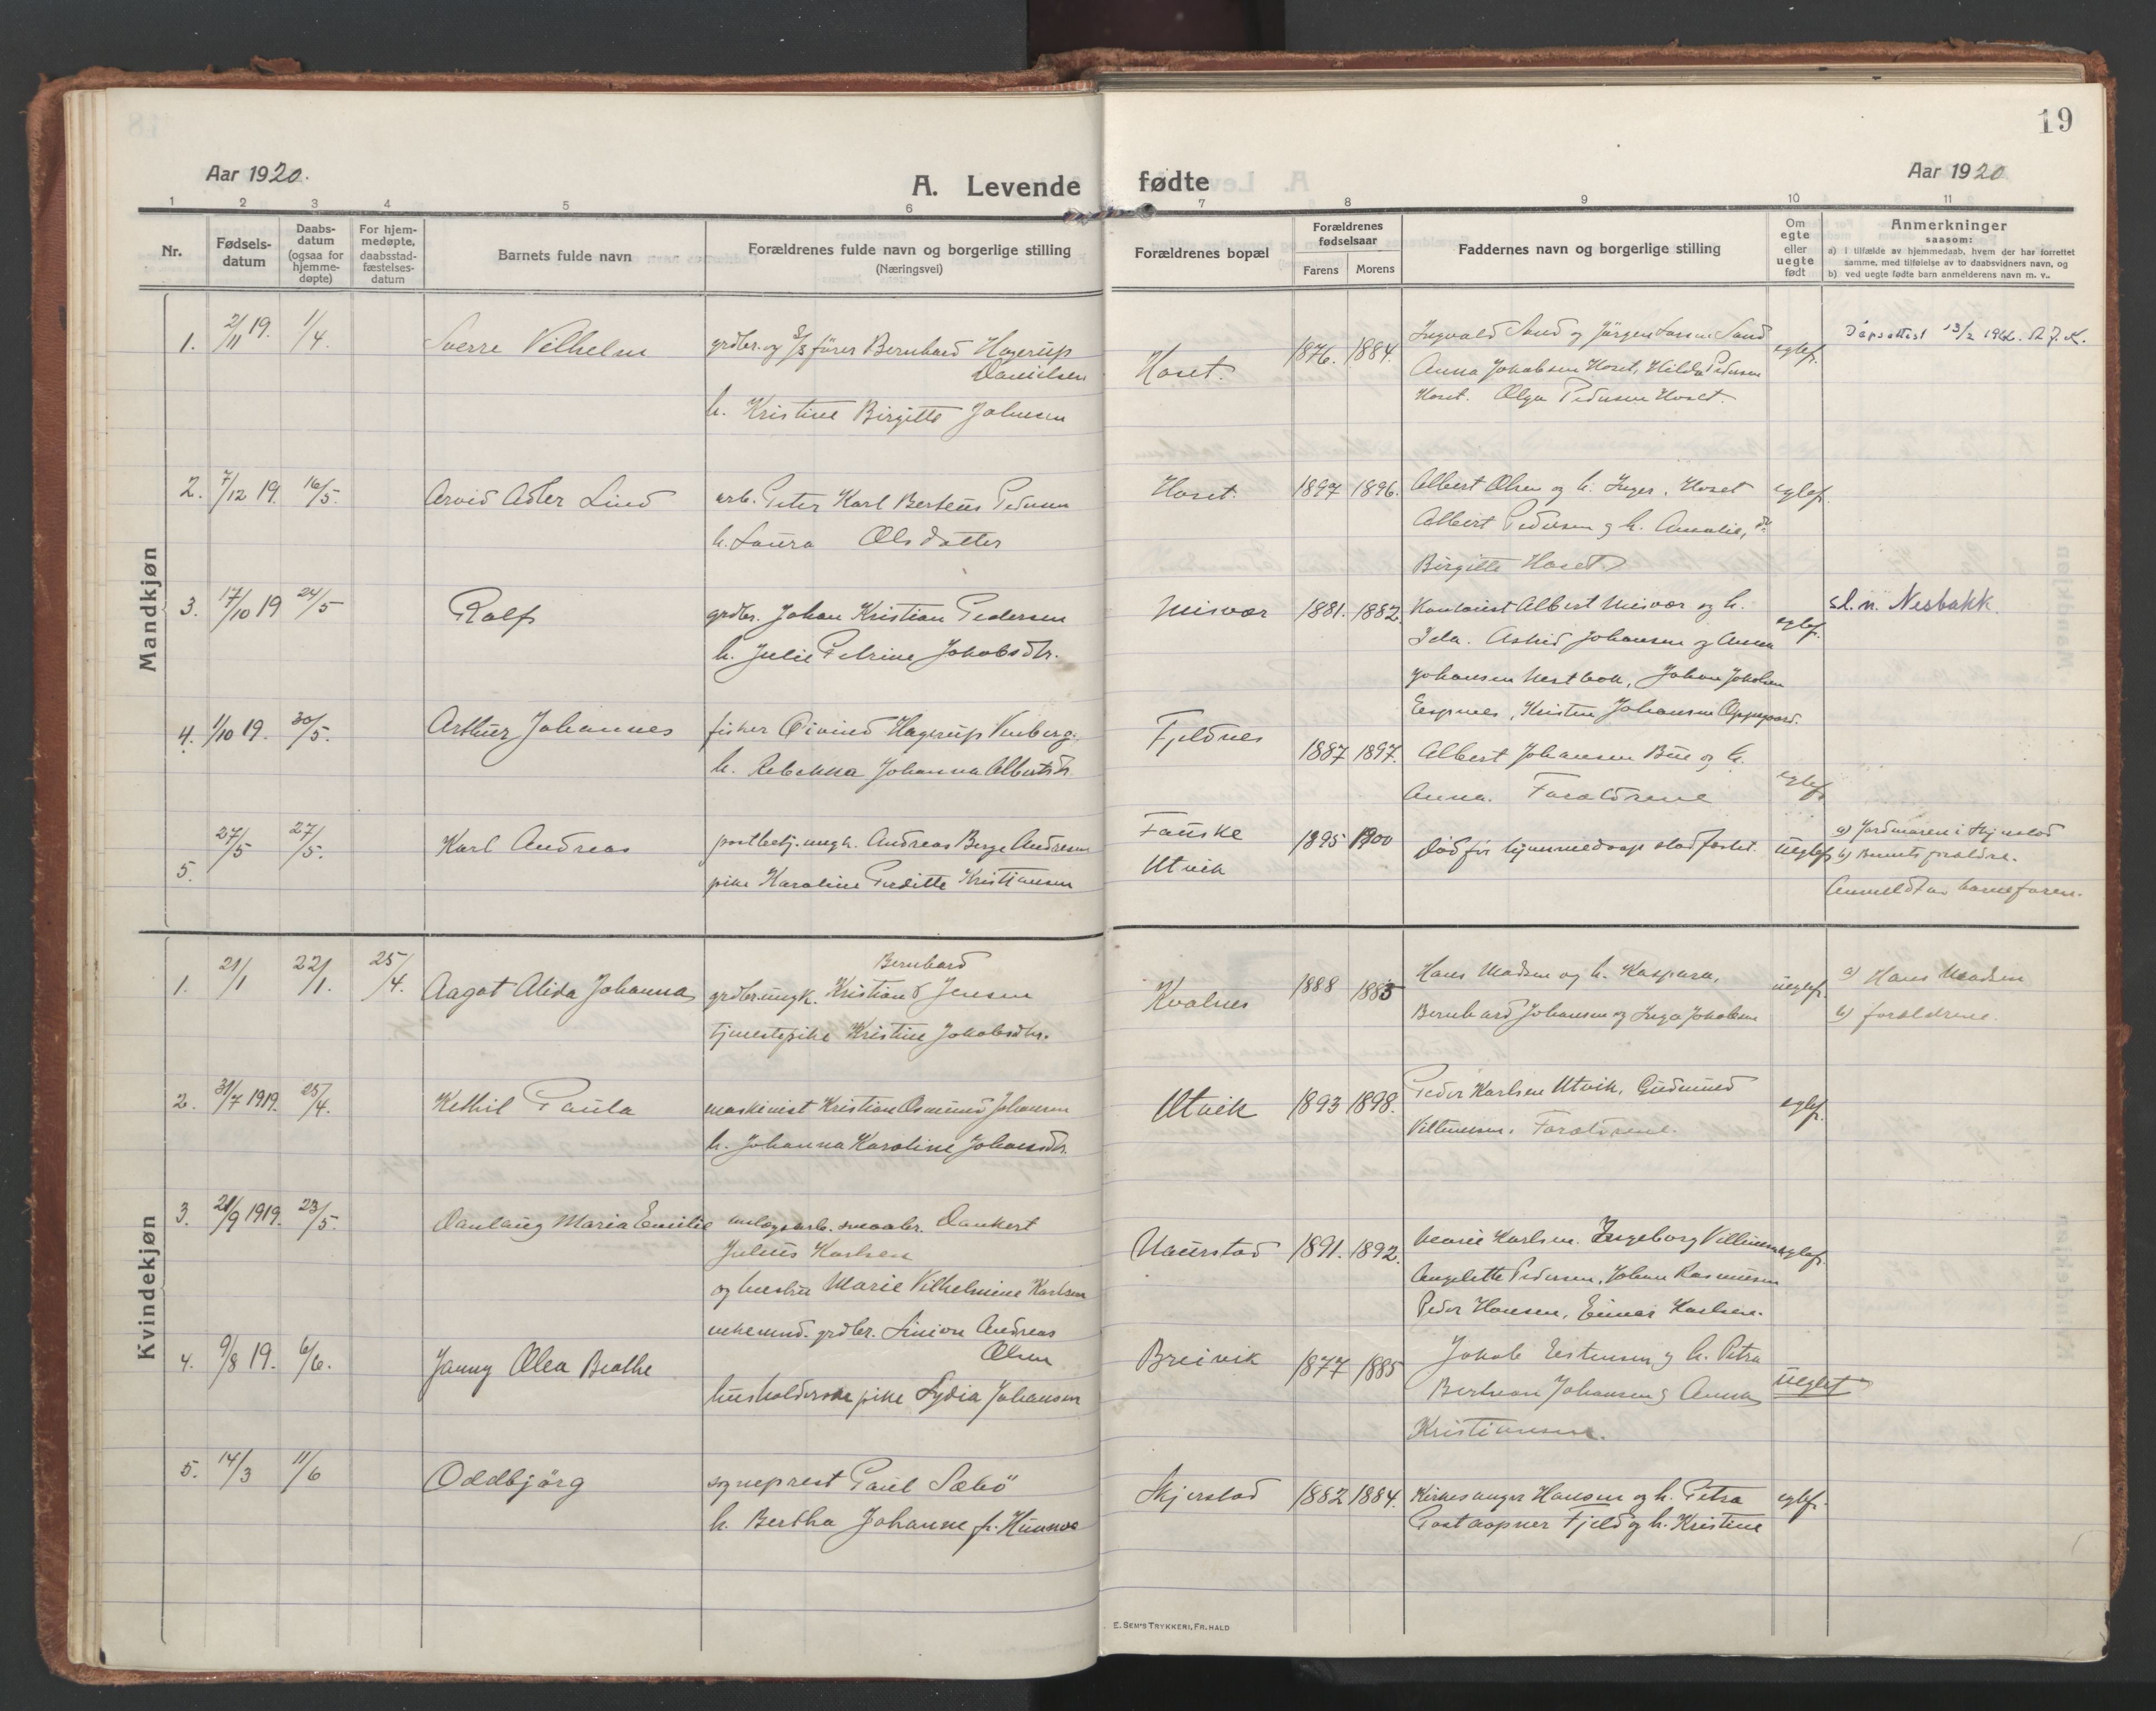 19
Aar 1920.
A. Levende fødte
Aar 1920
1 2 3 4 5 6 7 8 9 10 11
Nr.
Fødsels-
datum
Daabs-
datum
(ogsaa for
hjemme-
døpte)
For hjem-
medøpte,
daabsstad-
fæstelses-
datum
Barnets fulde navn
Forældrenes fulde navn og borgerlige stilling
(Næringsvei)
Forældrenes bopæl
Forældrenes
fødselsaar
Farens Morens
Faddernes navn og borgerlige stilling
Om
egte
eller
uegte
født
Anmerkninger
saasom:
a) i tilfælde av hjemmedaab, hvem der har forrettet
samme, med tilføielse av to daabsvidners navn, og
b) ved uegte fødte barn anmelderens navn m. v..
Mandkjøn
1. 2/11 19. 1/4. Sverre Vilhelm grdbr. og S/S fører Bernhard Hagerup Hoset. 1876. 1884. Ingvald Sand og Jørgen Larsen Sand egtef. Dåpsattest 13/2 1962.
Danielsen Anna Jakobsen Hoset, Hilda Pedersen
h. Kristine Birgitte Johnsen Hoset. Olga Pedersen Hoset.
2. 7/12 19. 16/5. Arvid Adler Lind arb. Peter Karl Berteus Pedersen Hoset. 1897 1896. Albert Olsen og h. Inger, Hoset egtef.
h. Laura Olsdatter Albert Pedersen og h. Amalie, do
Birgitte Hoset
3. 17/10 19 24/5 Rolf grdbr. Johan Kristian Pedersen Misvær 1881. 1882. Kontorist Albert Misvær og h. egtef. sl.n. Nesbakk.
h. Julie Petrine Jakobsdtr. Ida. Astrid Johansen og Anna
Johansen Nestbak, Johan Jakobsen
Espnes, Kristen Johansen Oppegaard.
4. 1/10 19. 30/5. Arthur Johannes fisker Øivind Hagerup Venberg. Fjeldnes 1887 1897. Albert Johansen Bue og h. egtef
h. Rebekka Johanna Albertsdtr. Anna. Forældrene
5. 27/5 27/5. Karl Andreas postbetj. ungk. Andreas Berge Andresen Fauske 1895 1900 Død før hjemmedaap stadfæstet. uegtef a) Jordmoren i Skjerstad
pike Karoline Perditte Kristiansen Utvik b) Barnets forældre.
Anmeldt av barnefaren.
Kvindekjøn
1. 21/1 22/1. 25/4. Aagot Alida Johanna grdbr. ungk. Kristian Bernhard Jensen Kvalnes 1888 1885 Hans Madsen og h. Kaspara, uegtef. a) Hans Madsen
tjenestepike Kristine Jakobsdtr. Bernhard Johansen og Inga Jakobsen b) forældrene.
2. 31/7 1919. 25/4. Kethil Paula maskinist Kristian Osmund Johansen Utvik 1893 1898. Peder Karlsen Utvik, Gudmund egtef.
h. Johanna Karoline Johansdtr. Villumsen. Forældrene.
3. 21/9 1919. 23/5. Danlaug Maria Emilie anlægsarb. smaabr. Dankert Naurstad 1891. 1892. Marie Karlsen. Ingeborg Villumsen egtef.
Julius Karlsen Angelette Pedersen, Johan Rasmussen
og hustru Marie Vilhelmine Karlsen Peder Hansen, Einar Karlsen.
4. 9/8 19. 6/6. Janny Olea Beathe enkemnd. grdbr. Simon Andreas Breivik 1877 1885 Jakob Estensen og h. Petra uegtef
Olsen Bertean Johansen og Anna
husholderske pike Lydia Johansen Kristiansen.
5. 14/3 11/6 Oddbjörg sogneprest Paul Sæbö Skjerstad 1882 1884. Kirkesanger Hansen og h. Petra egtef.
h. Bertha Johanne f. Hunnes Postaapner Fjeld og h. Kristine
E. SEM'S TRYKKERI, FR.HALD